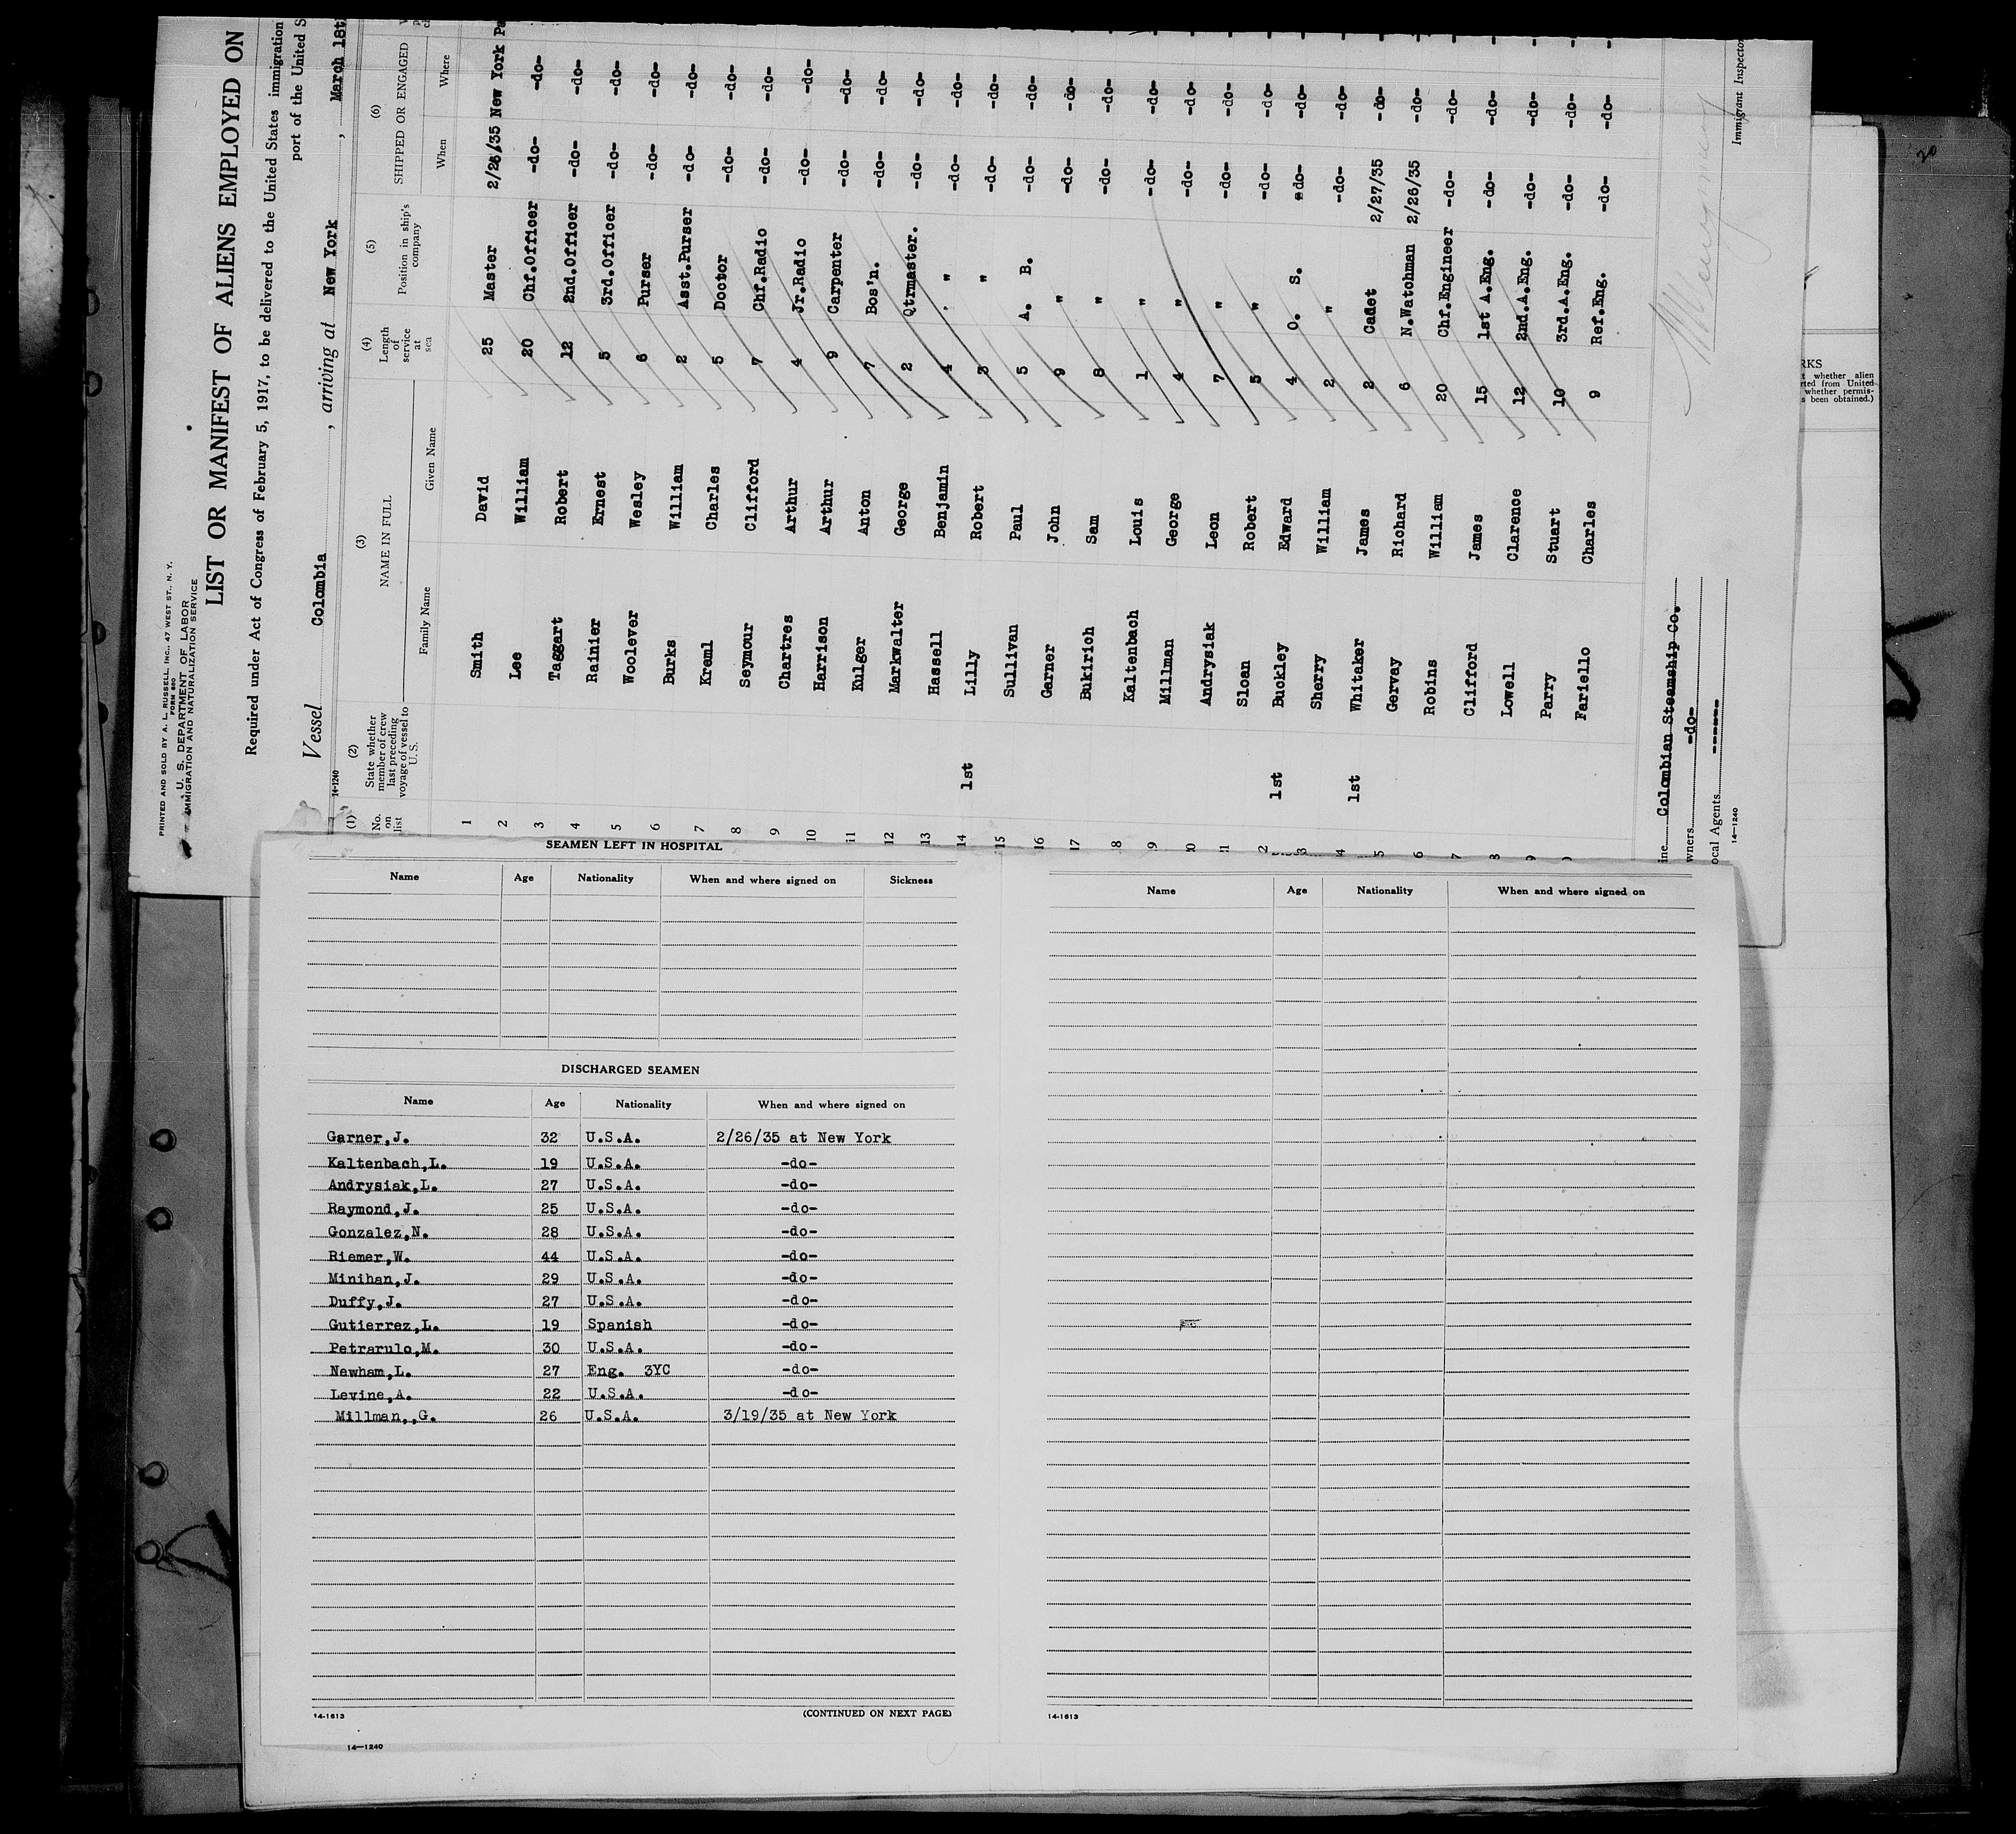 PRINTED AND SOLD BY A. L. RUSSELL, INC., 47 WEST ST., N. Y.
FORM 680
U. S. DEPARTMENT OF LABOR
IMMIGRATION AND NATURALIZATION SERVICE
LIST OR MANIFEST OF ALIENS EMPLOYED ON
Required under Act of Congress of February 5, 1917, to be delivered to the United States immigration
port of the United S
Vessel Colombia , arriving at New York , March 18t
14-1240
(1) No. on list (2) State whether member of crew last preceding voyage of vessel to U. S. (3) NAME IN FULL Family Name Given Name (4) Length of service at sea (5) Position in ship's company (6) SHIPPED OR ENGAGED When Where
1 Smith David 25 Master 2/26/35 New York
2 Lee William 20 Chf.Officer -do- -do-
3 Taggart Robert 12 2nd.Officer -do- -do-
4 Rainier Ernest 5 3rd.Officer -do- -do-
5 Woolever Wesley 6 Purser -do- -do-
6 Burks William 2 Asst.Purser -do- -do-
7 Kreml Charles 5 Doctor -do- -do-
8 Seymour Clifford 7 Chf.Radio -do- -do-
9 Chartres Arthur 4 Jr.Radio -do- -do-
10 Harrison Arthur 9 Carpenter -do- -do-
11 Kulger Anton 7 Bos'n. -do- -do-
12 Markwalter George 2 Qtrmaster. -do- -do-
13 Hassell Benjamin 4 " -do- -do-
14 1st Lilly Robert 3 " -do- -do-
15 Sullivan Paul 5 A. B. -do- -do-
16 Garner John 9 " -do- -do-
17 Bukirich Sam 8 " -do- -do-
8 Kaltenbach Louis 1 " -do- -do-
9 Millman George 4 " -do- -do-
0 Andrysiak Leon 7 " -do- -do-
1 Sloan Robert 5 " -do- -do-
2 1st Buckley Edward 4 O. S. -do- -do-
3 Sherry William 2 " -do- -do-
4 1st Whitaker James 2 Cadet 2/27/35 -do-
5 Gervay Richard 6 N.Watchman 2/26/35 -do-
6 Robins William 20 Chf.Engineer -do- -do-
7 Clifford James 15 1st A.Eng. -do- -do-
8 Lowell Clarence 12 2nd.A.Eng. -do- -do-
9 Parry Stuart 10 3rd.A.Eng. -do- -do-
Fariello Charles 9 Ref.Eng. -do- -do-
ine Colombian Steamship Co.
wners -do-
ocal Agents ------
14-1240
Immigrant Inspector
RKS
t whether alien
rted from United
whether permis-
s been obtained.)
20
SEAMEN LEFT IN HOSPITAL
Name Age Nationality When and where signed on Sickness
DISCHARGED SEAMEN
Name Age Nationality When and where signed on
Garner,J. 32 U.S.A. 2/26/35 at New York
Kaltenbach,L. 19 U.S.A. -do-
Andrysiak,L. 27 U.S.A. -do-
Raymond,J. 25 U.S.A. -do-
Gonzalez,N. 28 U.S.A. -do-
Riemer,W. 44 U.S.A. -do-
Minihan,J. 29 U.S.A. -do-
Duffy,J. 27 U.S.A. -do-
Gutierrez,L. 19 Spanish -do-
Petrarulo,M. 30 U.S.A. -do-
Newham,L. 27 Eng. 3YC -do-
Levine,A. 22 U.S.A. -do-
Millman,,G. 26 U.S.A. 3/19/35 at New York
(CONTINUED ON NEXT PAGE)
14-1613
14-1240
Name Age Nationality When and where signed on
14-1613